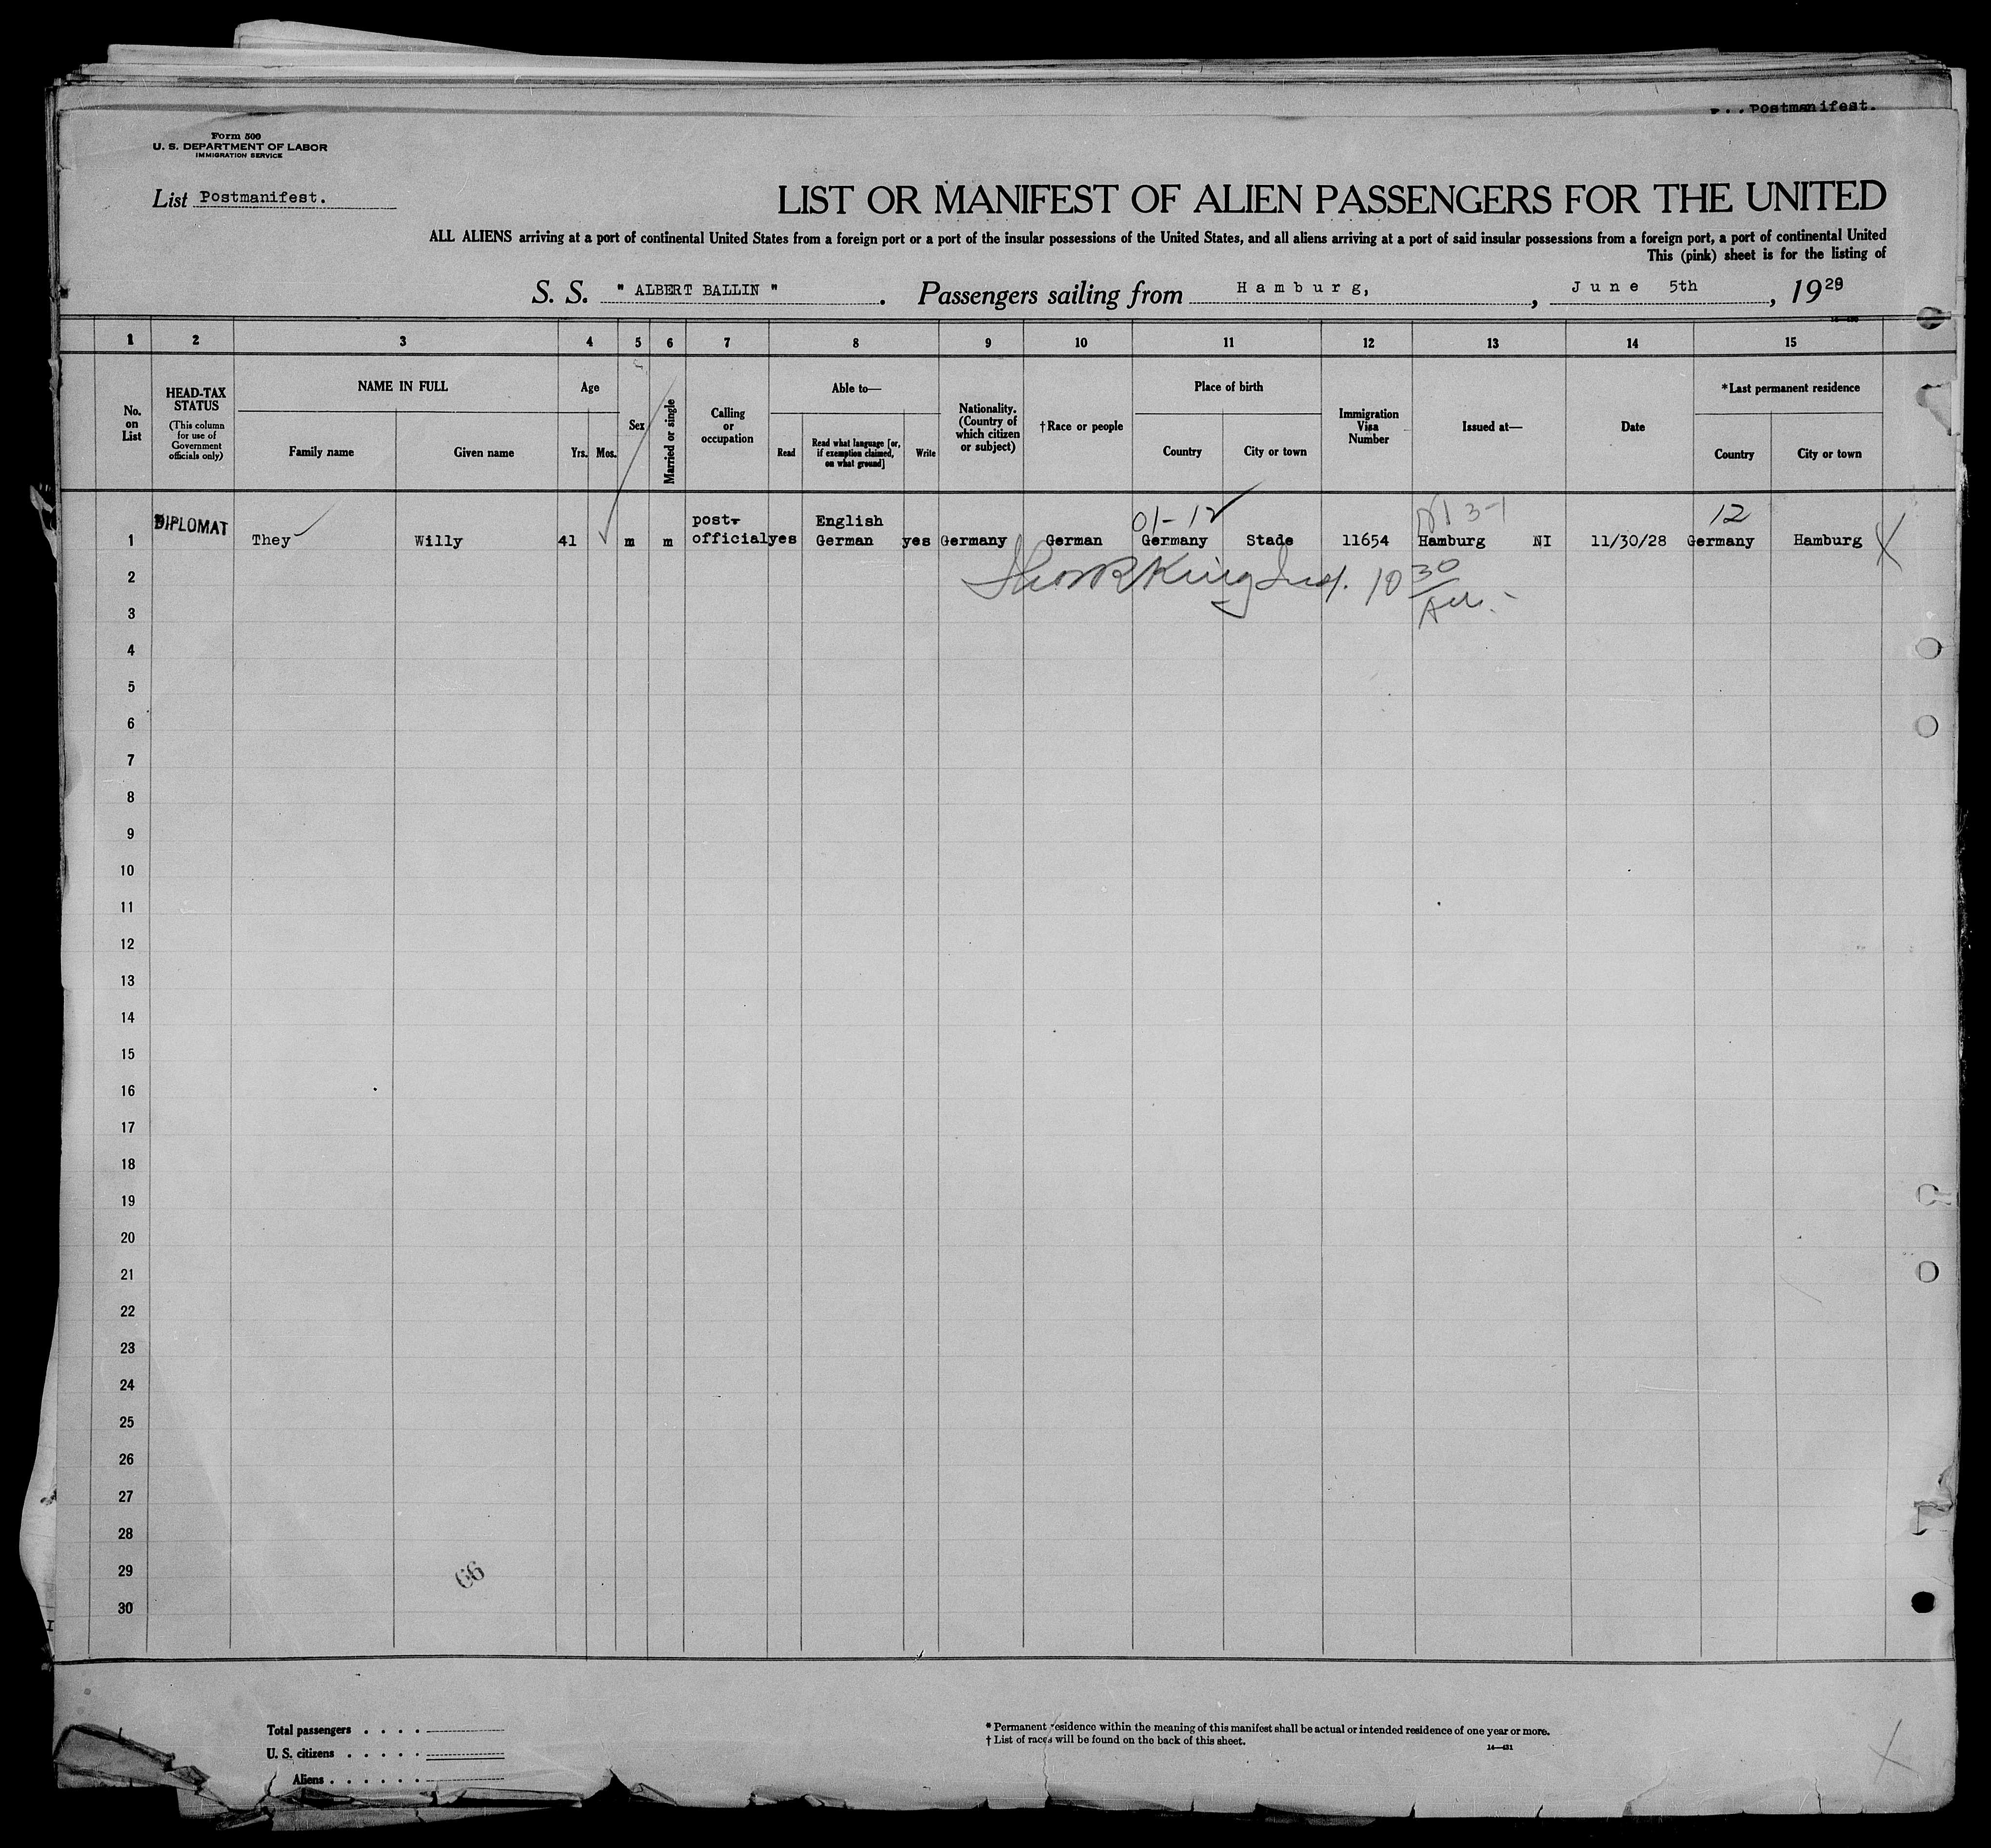 Postmanifest.
Form 500
U. S. DEPARTMENT OF LABOR
IMMIGRATION SERVICE
List Postmanifest.
LIST OR MANIFEST OF ALIEN PASSENGERS FOR THE UNITED
ALL ALIENS arriving at a port of continental United States from a foreign port or a port of the insular possessions of the United States, and all aliens arriving at a port of said insular possessions from a foreign port, a port of continental United
This (pink) sheet is for the listing of
S. S. " ALBERT BALLIN ". Passengers sailing from Hamburg, , June 5th, 1929
1 2 3 4 5 6 7 8 9 10 11 12 13 14 15
No. on List
HEAD-TAX STATUS
(This column for use of Government officials only)
NAME IN FULL
Family name Given name
Age
Yrs. Mos.
Sex
Married or single
Calling or occupation
Able to—
Read
Read what language [or, if exemption claimed, on what ground]
Write
Nationality. (Country of which citizen or subject)
†Race or people
Place of birth
Country City or town
Immigration Visa Number
Issued at—
Date
*Last permanent residence
Country City or town
DIPLOMAT post- English 01-12 3-1 12
1 They Willy 41 m m official yes German yes Germany German Germany Stade 11654 Hamburg NI 11/30/28 Germany Hamburg X
2 King Insp. 10 30
3
4
5
6
7
8
9
10
11
12
13
14
15
16
17
18
19
20
21
22
23
24
25
26
27
28
29
66
30
Total passengers . . . .
U. S. citizens . . . . .
Aliens . . . . . .
* Permanent residence within the meaning of this manifest shall be actual or intended residence of one year or more.
† List of races will be found on the back of this sheet.
14—431